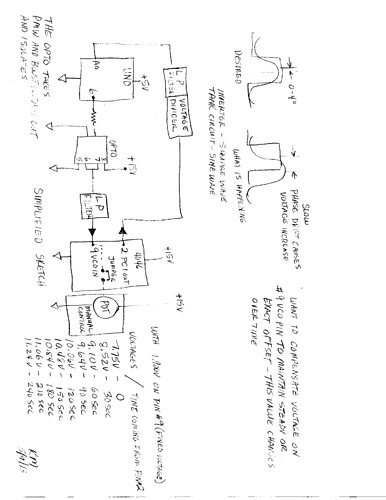 DESIRED
0-4°
INVERTER - SQUARE WAVE
TANK CIRCUIT - SINE WAVE
WHAT IS HAPPENING
SLOW
PHASE DRIFT CAUSES
VOLTAGE INCREASE
I WANT TO COMPENSATE VOLTAGE ON
#9 VCO PIN TO MAINTAIN STEADY OR
EXACT OFFSET - THIS VALUE CHANGES
OVER TIME
LP
FILTER
VOLTAGE
DIVIDER
+5V
UNO
A0
6
THE OPTO TAKES
PWM AND
AND ISOLATES
OPTO
+15V
LP
FILTER
SIMPLIFIED SKETCH
4046
2 PC1 OUT
9 VCO IN
JUMPER
+15V
POT
MANUAL
CONTROL
+15V
WITH 1.800V ON PIN #9 (FIXED VOLTAGE)
VOLTAGES / TIME COMING FROM PIN #2
7.75V - 0
8.52V - 30 SEC
9.10V - 60 SEC
9.64V - 90 SEC
10.06V - 120 SEC
10.46V - 150 SEC
10.84V - 180 SEC
11.06V - 210 SEC
11.24V - 240 SEC
KM